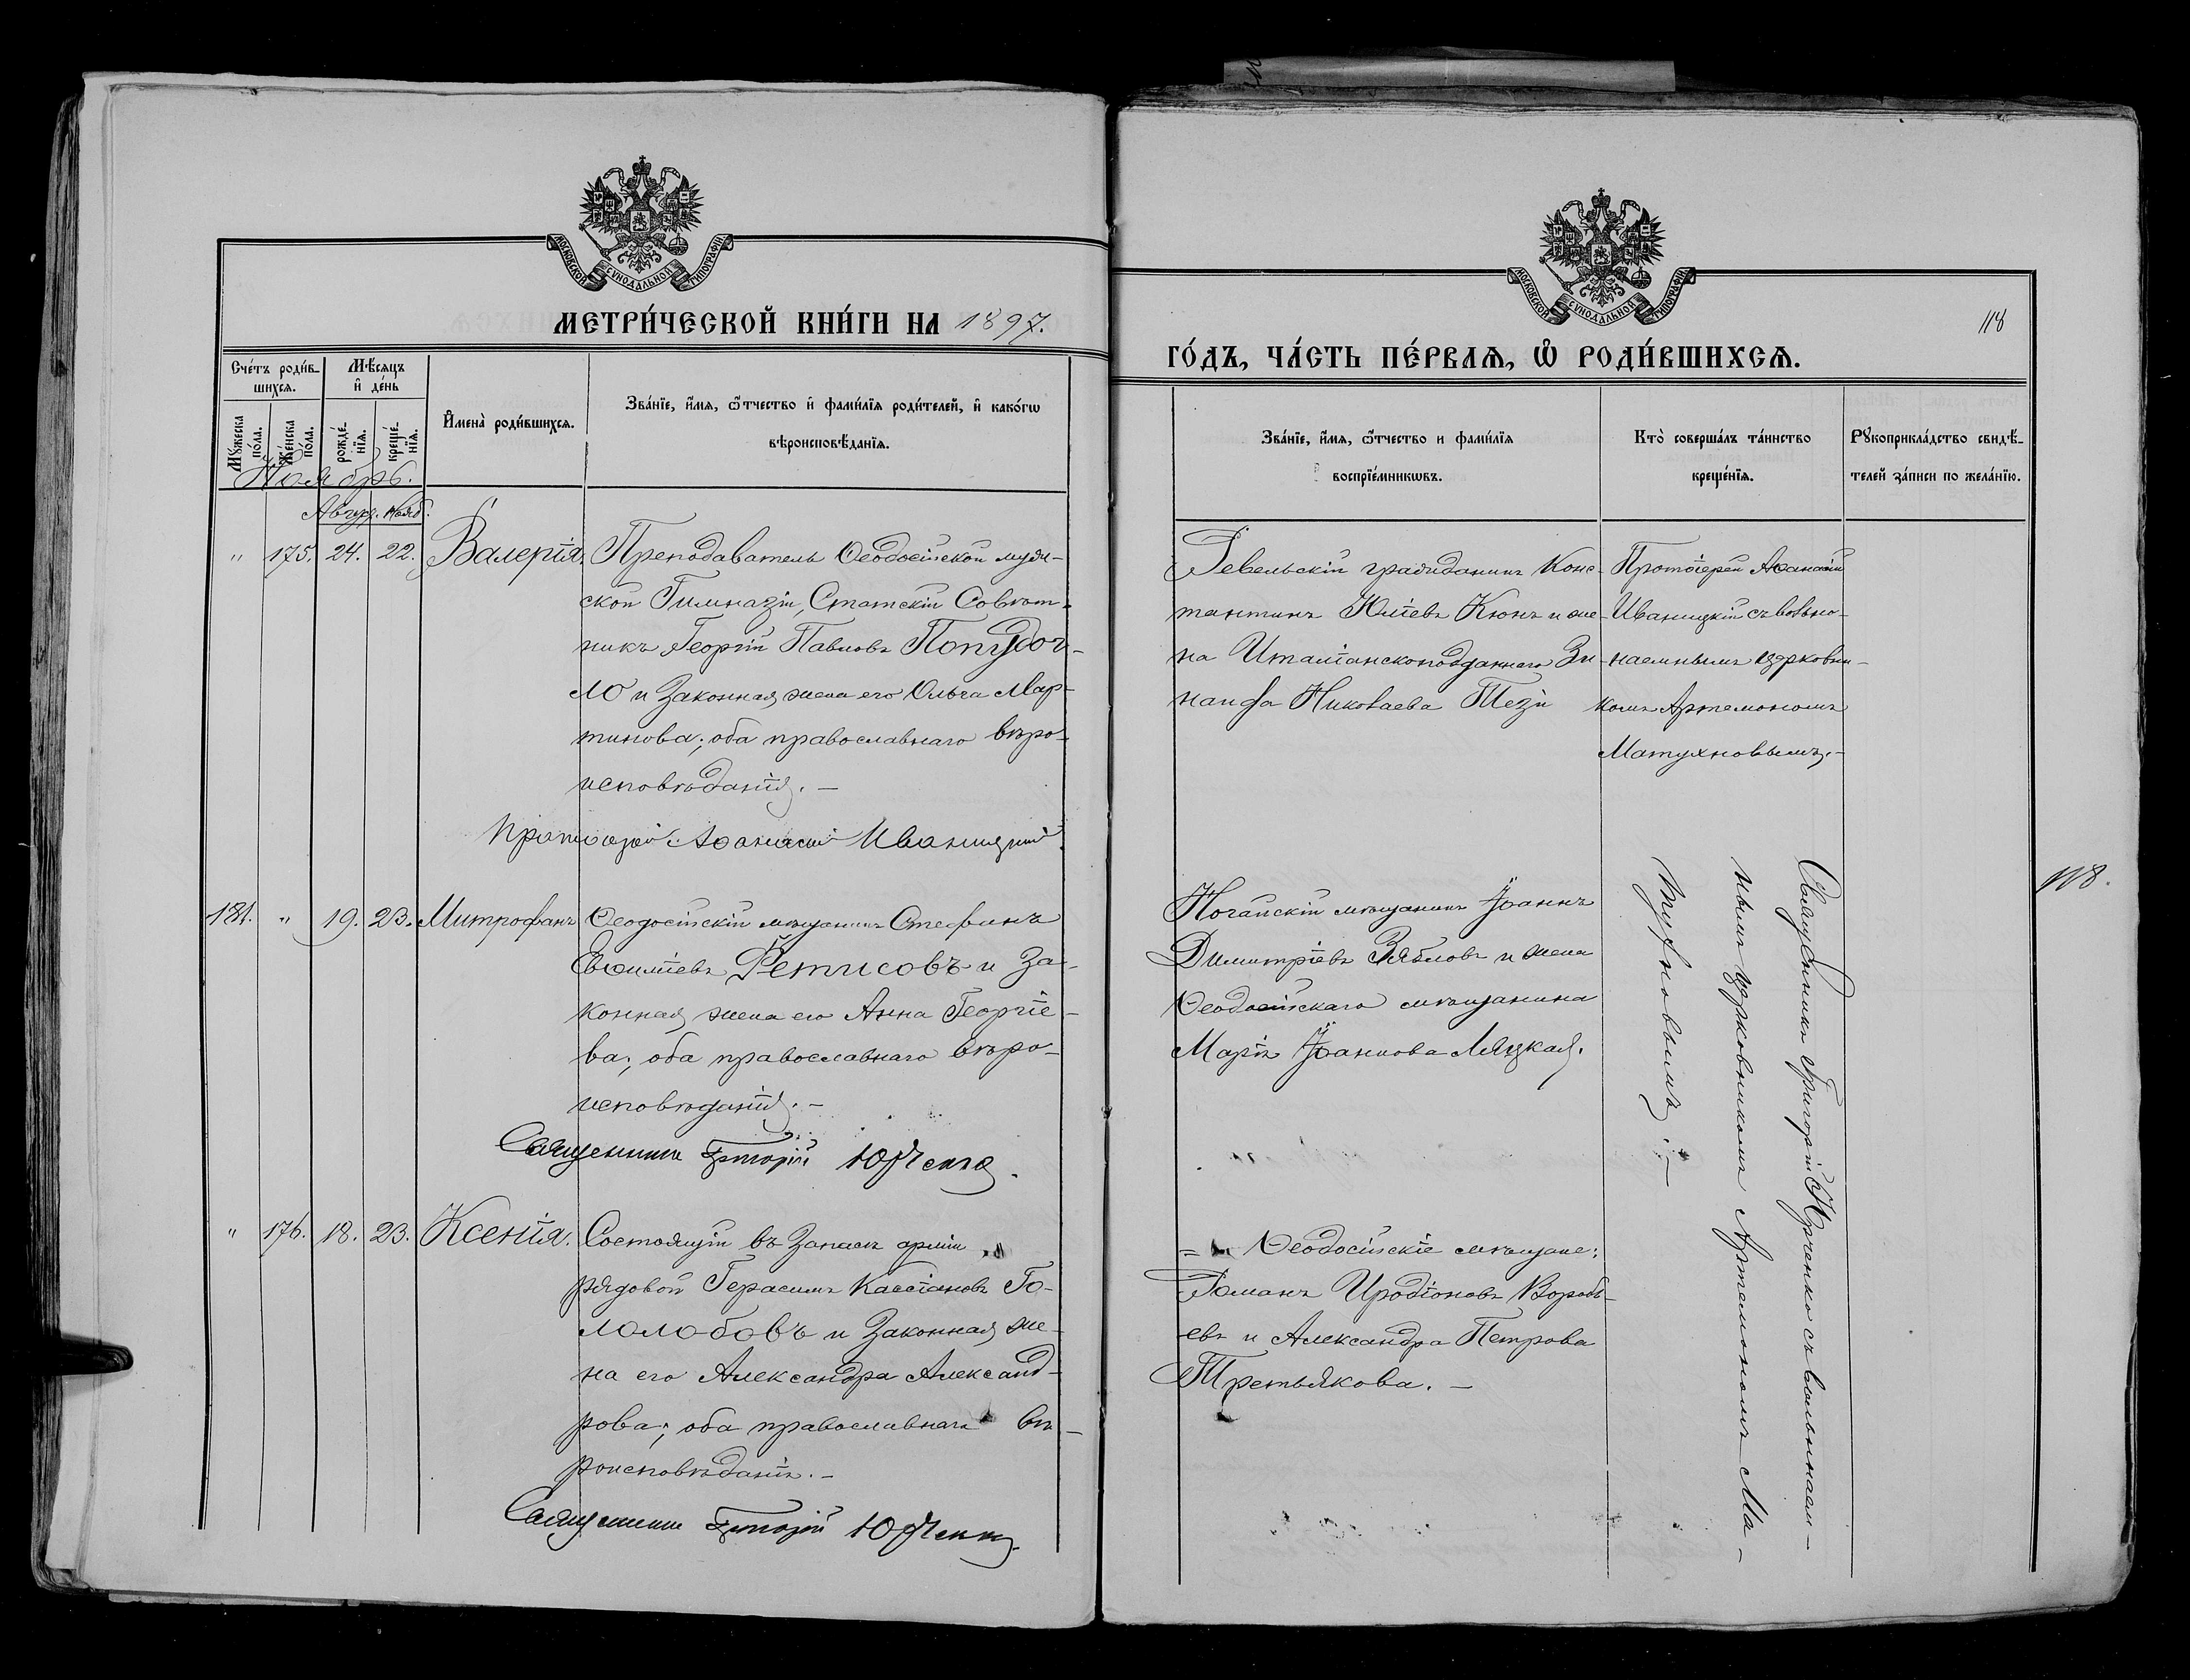 МОСКОВСКОЙ СѴНОДАЛЬНОЙ ТИПОГРАФІИ
МЕТРИ́ЧЕСКОЙ КНИ́ГИ НА 1897.
Сче́тъ роди́в-
шихся.
Мѣ́сяцъ
и҆ де́нь
Мꙋ́жеска
по́ла.
Же́нска
по́ла.
рожде́-
нїя.
креще́-
нїя.
И҆мена̀ роди́вшихся.
Зва́нїе, и҆́мя, ѻ҆́тчество и҆ фами́лїя роди́телей, и҆ како́гѡ
вѣроисповѣ́данїя.
Ноябрь.
Август. Нояб.
" 175. 24. 22. Валерія.
Преподаватель Ѳеодосійской муж-
ской Гимназіи, Статскій Совѣт-
никъ Георгій Павловъ Попудог-
ло и законная жена его Ольга Мар-
тинова; оба православнаго вѣро-
исповѣданія. –
Протоіерей Аѳанасій Иваницкій
181. " 19. 23. Митрофанъ
Ѳеодосійскій мѣщанинъ Стефанъ
Евѳиміевъ Фетисовъ и за-
конная жена его Анна Георгіе-
ва; оба православнаго вѣро-
исповѣданія. –
Священникъ Григорій Юрченко.
" 176. 18. 23. Ксенія.
Состоящій въ запасѣ арміи
рядовой Герасимъ Кассіановъ Го-
лолобовъ и законная же-
на его Александра Александ-
рова; оба православнаго вѣ-
роисповѣданія. –
Священникъ Григорій Юрченко.
МОСКОВСКОЙ СѴНОДАЛЬНОЙ ТИПОГРАФІИ
118
ГО́ДЪ, ЧА́СТЬ ПЕ́РВАЯ, Ѽ РОДИ́ВШИХСЯ.
Зва́нїе, и҆́мя, ѻ҆́тчество и фами́лїя
воспрїе́мникѡвъ.
Кто̀ соверша́лъ та́инство
креще́нїя.
Рꙋкоприкла́дство свидѣ́-
телей за́писи по жела́нїю.
Ревельскій гражданинъ Конс-
тантинъ Юліевъ Кюнъ и же-
на Италіанскоподданнаго Зи-
наида Николаева Тези
Протоіерей Аѳанасій
Иваницкій съ вольно-
наемнымъ церковни-
комъ Артемономъ
Матухновымъ. –
Ногайскій мѣщанинъ Іоаннъ
Димитріевъ Зябловъ и жена
Ѳеодосійскаго мѣщанина
Марія Іоаннова Ляцкая.
Священникъ Григорій Юрченко съ вольнонаем-
нымъ церковникомъ Артемономъ Ма-
тухновымъ. –
118.
= Ѳеодосійскіе мѣщане:
Романъ Иродіоновъ Воробь-
евъ и Александра Петрова
Третьякова. –